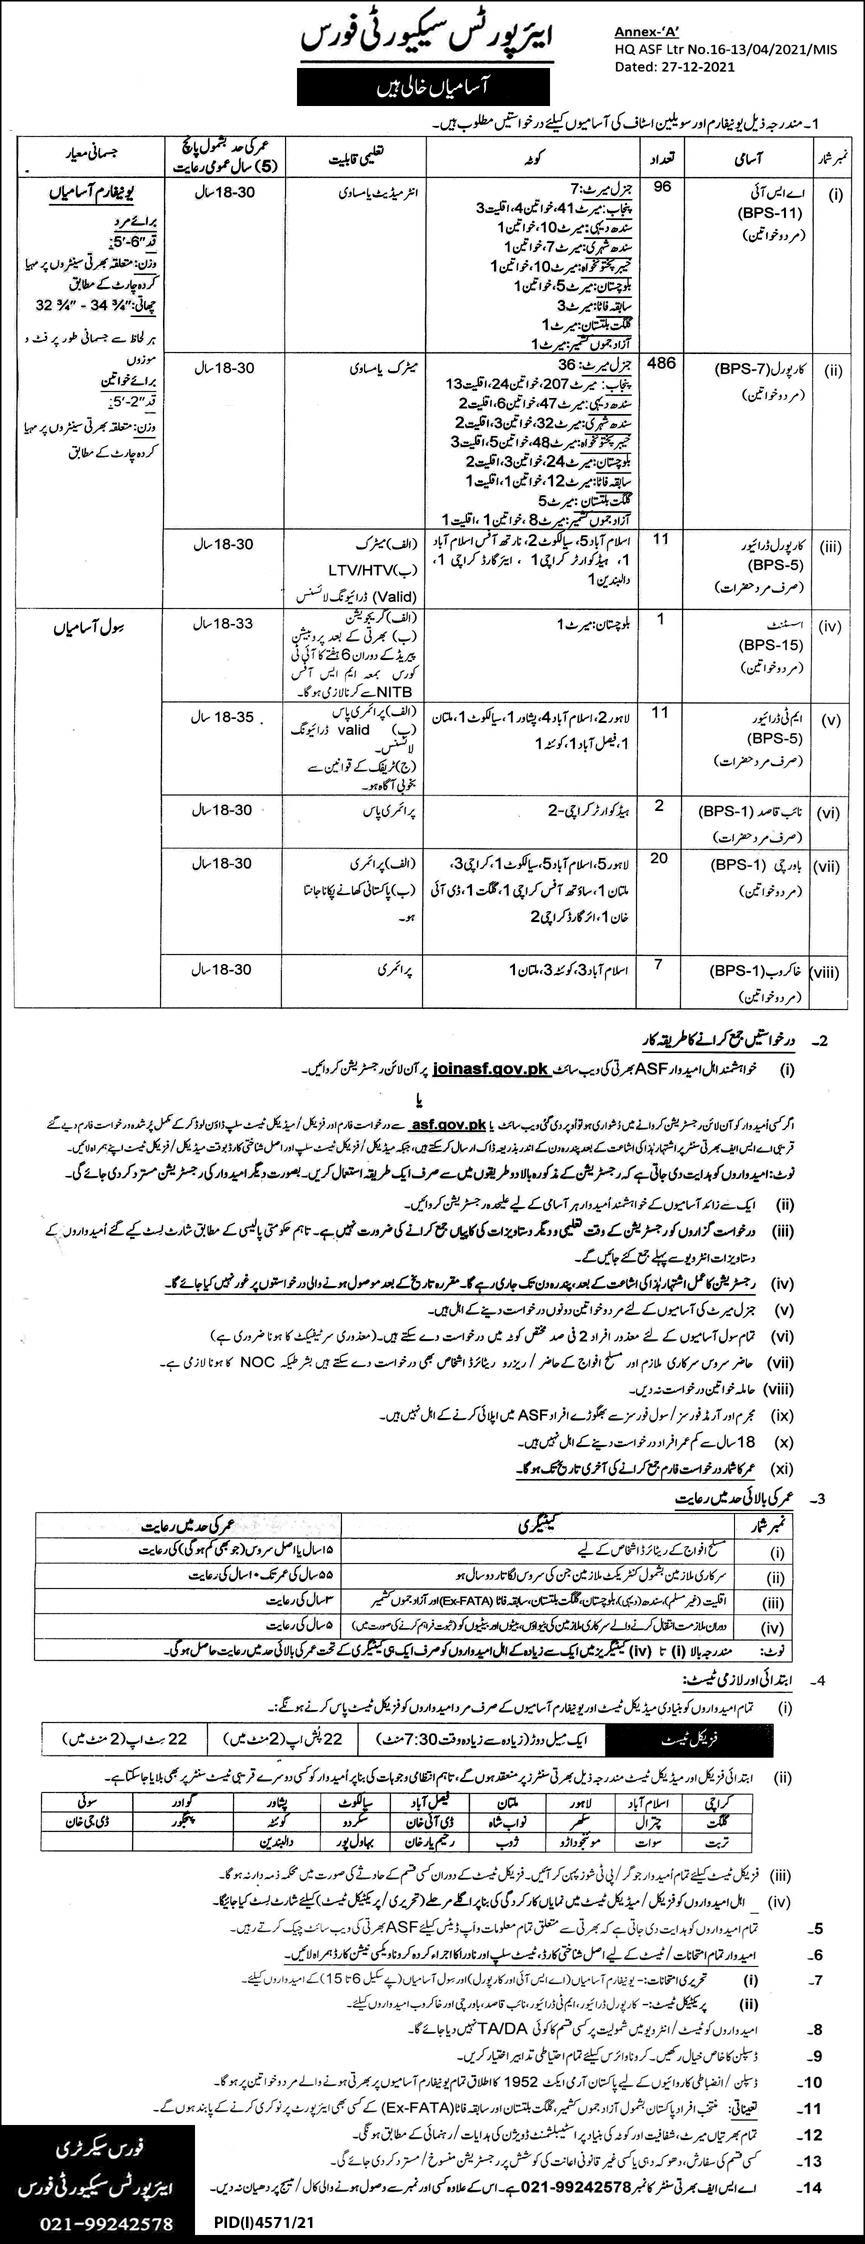 ایئرپورٹس سیکیورٹی فورس
Annex-‘A’
HQ ASF Ltr No.16-13/04/2021/MIS
Dated: 27-12-2021
آسامیاں خالی ہیں
1۔ مندرجہ ذیل یونیفارم اور سویلین اسٹاف کی آسامیوں کیلئے درخواستیں مطلوب ہیں۔
نمبر شمار | آسامی | تعداد | کوٹہ | تعلیمی قابلیت | عمر کی حد بشمول پانچ (5) سال عمومی رعایت | جسمانی معیار
(i) | اے ایس آئی (BPS-11) (مرد و خواتین) | 96 | جنرل میرٹ: 7 | انٹرمیڈیٹ یا مساوی | 18-30 سال | یونیفارم آسامیاں
پنجاب: میرٹ 41، خواتین 4، اقلیت 3
سندھ دیہی: میرٹ 10، خواتین 1
سندھ شہری: میرٹ 7، خواتین 1
خیبر پختونخواہ: میرٹ 10، خواتین 1
بلوچستان: میرٹ 5، خواتین 1
سابقہ فاٹا: میرٹ 3
گلگت بلتستان: میرٹ 1
آزاد جموں کشمیر: میرٹ 1
برائے مرد
قد"6-'5:
وزن: متعلقہ بھرتی سینٹروں پر مہیا
کردہ چارٹ کے مطابق
چھاتی: "¾ 34 - "¾ 32
ہر لحاظ سے جسمانی طور پر فٹ و
موزوں
برائے خواتین
قد"2-'5:
وزن: متعلقہ بھرتی سینٹروں پر مہیا
کردہ چارٹ کے مطابق
(ii) | کارپورل (BPS-7) (مرد و خواتین) | 486 | جنرل میرٹ: 36 | میٹرک یا مساوی | 18-30 سال
پنجاب: میرٹ 207، خواتین 24، اقلیت 13
سندھ دیہی: میرٹ 47، خواتین 6، اقلیت 2
سندھ شہری: میرٹ 32، خواتین 3، اقلیت 2
خیبر پختونخواہ: میرٹ 48، خواتین 5، اقلیت 3
بلوچستان: میرٹ 24، خواتین 3، اقلیت 2
سابقہ فاٹا: میرٹ 12، خواتین 1، اقلیت 1
گلگت بلتستان: میرٹ 5
آزاد جموں کشمیر: میرٹ 8، خواتین 1، اقلیت 1
(iii) | کارپورل ڈرائیور (BPS-5) (صرف مرد حضرات) | 11 | اسلام آباد 5، سیالکوٹ 2، نارتھ آفس اسلام آباد 1، ہیڈ کوارٹر کراچی 1، ایئر گارڈ کراچی 1، دالبندین 1 | (الف) میٹرک (ب) LTV/HTV (Valid) ڈرائیونگ لائسنس | 18-30 سال
(iv) | اسسٹنٹ (BPS-15) (مرد و خواتین) | 1 | بلوچستان: میرٹ 1 | (الف) گریجویشن (ب) بھرتی کے بعد پروبیشن پیریڈ کے دوران 6 ہفتے کا آئی ٹی کورس بمعہ ایم ایس آفس NITB سے کرنا لازمی ہوگا۔ | 18-33 سال | سول آسامیاں
(v) | ایم ٹی ڈرائیور (BPS-5) (صرف مرد حضرات) | 11 | لاہور 2، اسلام آباد 4، پشاور 1، سیالکوٹ 1، ملتان 1، فیصل آباد 1، کوئٹہ 1 | (الف) پرائمری پاس (ب) valid ڈرائیونگ لائسنس۔ (ج) ٹریفک کے قوانین سے بخوبی آگاہ ہو۔ | 18-35 سال
(vi) | نائب قاصد (BPS-1) (صرف مرد حضرات) | 2 | ہیڈ کوارٹر کراچی-2 | پرائمری پاس | 18-30 سال
(vii) | باورچی (BPS-1) (مرد و خواتین) | 20 | لاہور 5، اسلام آباد 5، سیالکوٹ 1، کراچی 3، ملتان 1، ساؤتھ آفس کراچی 1، گلگت 1، ڈی آئی خان 1، ائر گارڈ کراچی 2 | (الف) پرائمری (ب) پاکستانی کھانے پکانا جانتا ہو۔ | 18-30 سال
(viii) | خاکروب (BPS-1) (مرد و خواتین) | 7 | اسلام آباد 3، کوئٹہ 3، ملتان 1 | پرائمری | 18-30 سال
2۔ درخواستیں جمع کرانے کا طریقہ کار
(i) خواہشمند اہل امیدوار ASF بھرتی کی ویب سائٹ joinasf.gov.pk پر آن لائن رجسٹریشن کروائیں۔
یا
اگر کسی اُمیدوار کو آن لائن رجسٹریشن کروانے میں دُشواری ہو تو اُوپر دی گئی ویب سائٹ یا asf.gov.pk سے درخواست فارم اور فزیکل/میڈیکل ٹیسٹ سلپ ڈاؤن لوڈ کر کے مکمل پُر شدہ درخواست فارم دیے گئے
قریبی اے ایس ایف بھرتی سنٹر پر اشتہار ہٰذا کی اشاعت کے بعد پندرہ دن کے اندر بذریعہ ڈاک ارسال کر سکتے ہیں، جبکہ میڈیکل/فزیکل ٹیسٹ سلپ اور اصل شناختی کارڈ بوقت میڈیکل/فزیکل ٹیسٹ اپنے ہمراہ لائیں۔
نوٹ: امیدواروں کو ہدایت دی جاتی ہے کہ رجسٹریشن کے مذکورہ بالا دو طریقوں میں سے صرف ایک طریقہ استعمال کریں۔ بصورت دیگر امیدوار کی رجسٹریشن مسترد کر دی جائے گی۔
(ii) ایک سے زائد آسامیوں کے خواہشمند امیدوار ہر آسامی کے لیے علیحدہ رجسٹریشن کروائیں۔
(iii) درخواست گزاروں کو رجسٹریشن کے وقت تعلیمی و دیگر دستاویزات کی کاپیاں جمع کرانے کی ضرورت نہیں ہے۔ تاہم حکومتی پالیسی کے مطابق شارٹ لسٹ کیے گئے اُمیدواروں کے
دستاویزات انٹرویو سے پہلے جمع کئے جائیں گے۔
(iv) رجسٹریشن کا عمل اشتہار ہٰذا کی اشاعت کے بعد پندرہ دن تک جاری رہے گا۔ مقررہ تاریخ کے بعد موصول ہونے والی درخواستوں پر غور نہیں کیا جائے گا۔
(v) جنرل میرٹ کی آسامیوں کے لئے مرد و خواتین دونوں درخواست دینے کے اہل ہیں۔
(vi) تمام سول آسامیوں کے لئے معذور افراد 2 فی صد مختص کوٹہ میں درخواست دے سکتے ہیں۔ (معذوری سرٹیفیکٹ کا ہونا ضروری ہے)
(vii) حاضر سروس سرکاری ملازم اور مسلح افواج کے حاضر/ریزرو ریٹائرڈ اشخاص بھی درخواست دے سکتے ہیں بشرطیکہ NOC کا ہونا لازمی ہے۔
(viii) حاملہ خواتین درخواست نہ دیں۔
(ix) مجرم اور آرمڈ فورسز/سول فورسز سے بھگوڑے افراد ASF میں اپلائی کرنے کے اہل نہیں ہیں۔
(x) 18 سال سے کم عمر افراد درخواست دینے کے اہل نہیں ہیں۔
(xi) عمر کا شمار درخواست فارم جمع کرانے کی آخری تاریخ تک ہوگا۔
3۔ عمر کی بالائی حد میں رعایت
نمبر شمار | کیٹیگری | عمر کی حد میں رعایت
(i) | مسلح افواج کے ریٹائرڈ اشخاص کے لیے | ۱۵ سال یا اصل سروس (جو بھی کم ہوگی) کی رعایت
(ii) | سرکاری ملازمین بشمول کنٹریکٹ ملازمین جن کی سروس لگاتار دو سال ہو | ۵۵ سال کی عمر تک ۱۰ سال کی رعایت
(iii) | اقلیت (غیر مسلم)، سندھ (دیہی)، بلوچستان، گلگت بلتستان، سابقہ فاٹا (Ex-FATA) اور آزاد جموں کشمیر | ۳ سال کی رعایت
(iv) | دوران ملازمت انتقال کرنے والے سرکاری ملازمین کی بیواؤں، بیٹوں اور بیٹیوں کو (ثبوت فراہم کرنے کی صورت میں) | ۵ سال کی رعایت
نوٹ: مندرجہ بالا (i) تا (iv) کیٹیگریز میں ایک سے زیادہ کے اہل امیدواروں کو صرف ایک ہی کیٹیگری کے تحت عمر کی بالائی حد میں رعایت حاصل ہوگی۔
4۔ ابتدائی اور لازمی ٹیسٹ:
(i) تمام امیدواروں کو بنیادی میڈیکل ٹیسٹ اور یونیفارم آسامیوں کے صرف مرد امیدواروں کو فزیکل ٹیسٹ پاس کرنے ہونگے:۔
فزیکل ٹیسٹ | ایک میل دوڑ (زیادہ سے زیادہ وقت 7:30 منٹ) | 22 پُش اپ (2 منٹ میں) | 22 سِٹ اپ (2 منٹ میں)
(ii) ابتدائی فزیکل اور میڈیکل ٹیسٹ مندرجہ ذیل بھرتی سنٹرز پر منعقد ہوں گے، تاہم انتظامی وجوہات کی بنا پر اُمیدوار کو کسی دوسرے قریبی ٹیسٹ سنٹر پر بھی بلایا جا سکتا ہے۔
کراچی | اسلام آباد | لاہور | ملتان | فیصل آباد | سیالکوٹ | پشاور | گوادر | سوئی
گلگت | چترال | سکھر | نواب شاہ | ڈی آئی خان | سکردو | کوئٹہ | پنجگور | ڈی جی خان
تربت | سوات | موہنجوداڑو | ژوب | رحیم یار خان | بہاول پور | دالبندین
(iii) فزیکل ٹیسٹ کیلئے تمام امیدوار جوگر/پی ٹی شوز پہن کر آئیں۔ فزیکل ٹیسٹ کے دوران کسی قسم کے حادثے کی صورت میں محکمہ ذمہ دار نہ ہوگا۔
(iv) اہل امیدواروں کو فزیکل/میڈیکل ٹیسٹ میں نمایاں کارکردگی کی بنا پر اگلے مرحلے (تحریری/پریکٹیکل ٹیسٹ) کیلئے شارٹ لسٹ کیا جائیگا۔
5۔ تمام امیدواروں کو ہدایت دی جاتی ہے کہ بھرتی سے متعلق تمام معلومات و اَپ ڈیٹس کیلئے ASF بھرتی کی ویب سائٹ چیک کرتے رہیں۔
6۔ امیدوار تمام امتحانات/ٹیسٹ کے لیے اصل شناختی کارڈ، ٹیسٹ سلپ اور نادرا کا اجراء کردہ کرونا ویکسی نیشن کارڈ ہمراہ لائیں۔
7۔ (i) تحریری امتحانات:۔ یونیفارم آسامیاں (اے ایس آئی اور کارپورل) اور سول آسامیاں (پے سکیل 6 تا 15) کے امیدواروں کیلئے۔
(ii) پریکٹیکل ٹیسٹ:۔ کارپورل ڈرائیور، ایم ٹی ڈرائیور، نائب قاصد، باورچی اور خاکروب امیدواروں کیلئے۔
8۔ امیدواروں کو ٹیسٹ/انٹرویو میں شمولیت پر کسی قسم کا کوئی TA/DA نہیں دیا جائے گا۔
9۔ ڈسپلن کا خاص خیال رکھیں۔ کرونا وائرس کیلئے تمام احتیاطی تدابیر اختیار کریں۔
10۔ ڈسپلن/انضباطی کاروائیوں کے لیے پاکستان آرمی ایکٹ 1952 کا اطلاق تمام یونیفارم آسامیوں پر بھرتی ہونے والے مرد و خواتین پر ہوگا۔
11۔ تعیناتی: منتخب افراد پاکستان بشمول آزاد جموں کشمیر، گلگت بلتستان اور سابقہ فاٹا (Ex-FATA) کے کسی بھی ایئرپورٹ پر نوکری کرنے کے پابند ہوں گے۔
12۔ تمام بھرتیاں میرٹ، شفافیت اور کوٹہ کی بنیاد پر اسٹیبلشمنٹ ڈویژن کی ہدایات/رہنمائی کے مطابق ہونگی۔
13۔ کسی قسم کی سفارش، دھوکہ دہی یا کسی غیر قانونی اعانت کی کوشش پر رجسٹریشن منسوخ/مسترد کر دی جائے گی۔
14۔ اے ایس ایف بھرتی سنٹر کا نمبر 021-99242578 ہے۔ اس کے علاوہ کسی اور نمبر سے وصول ہونے والی کال/میسج پر دھیان نہ دیں۔
فورس سیکرٹری
ایئرپورٹس سیکیورٹی فورس
021-99242578
PID(I)4571/21